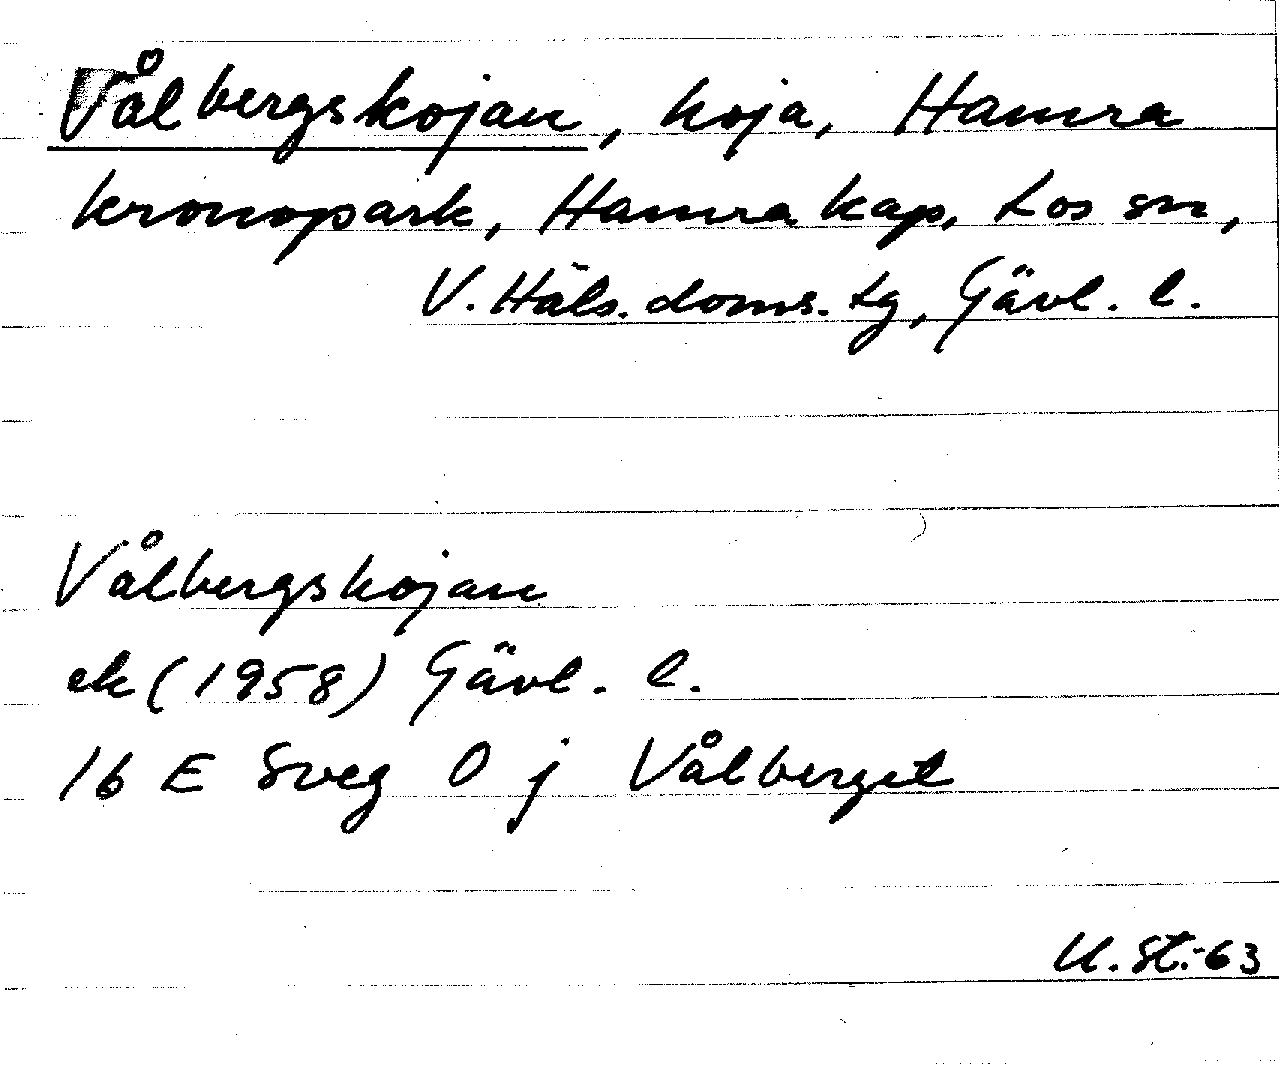 Vålbergskojan, koja, Hamra
kronopark, Hamra kap, Los sn,
V. Häls. doms. tg, Gävl. l.
Vålbergskojan
ek (1958) Gävl. l.
16 E Sveg O j Vålberget
U. St.-63